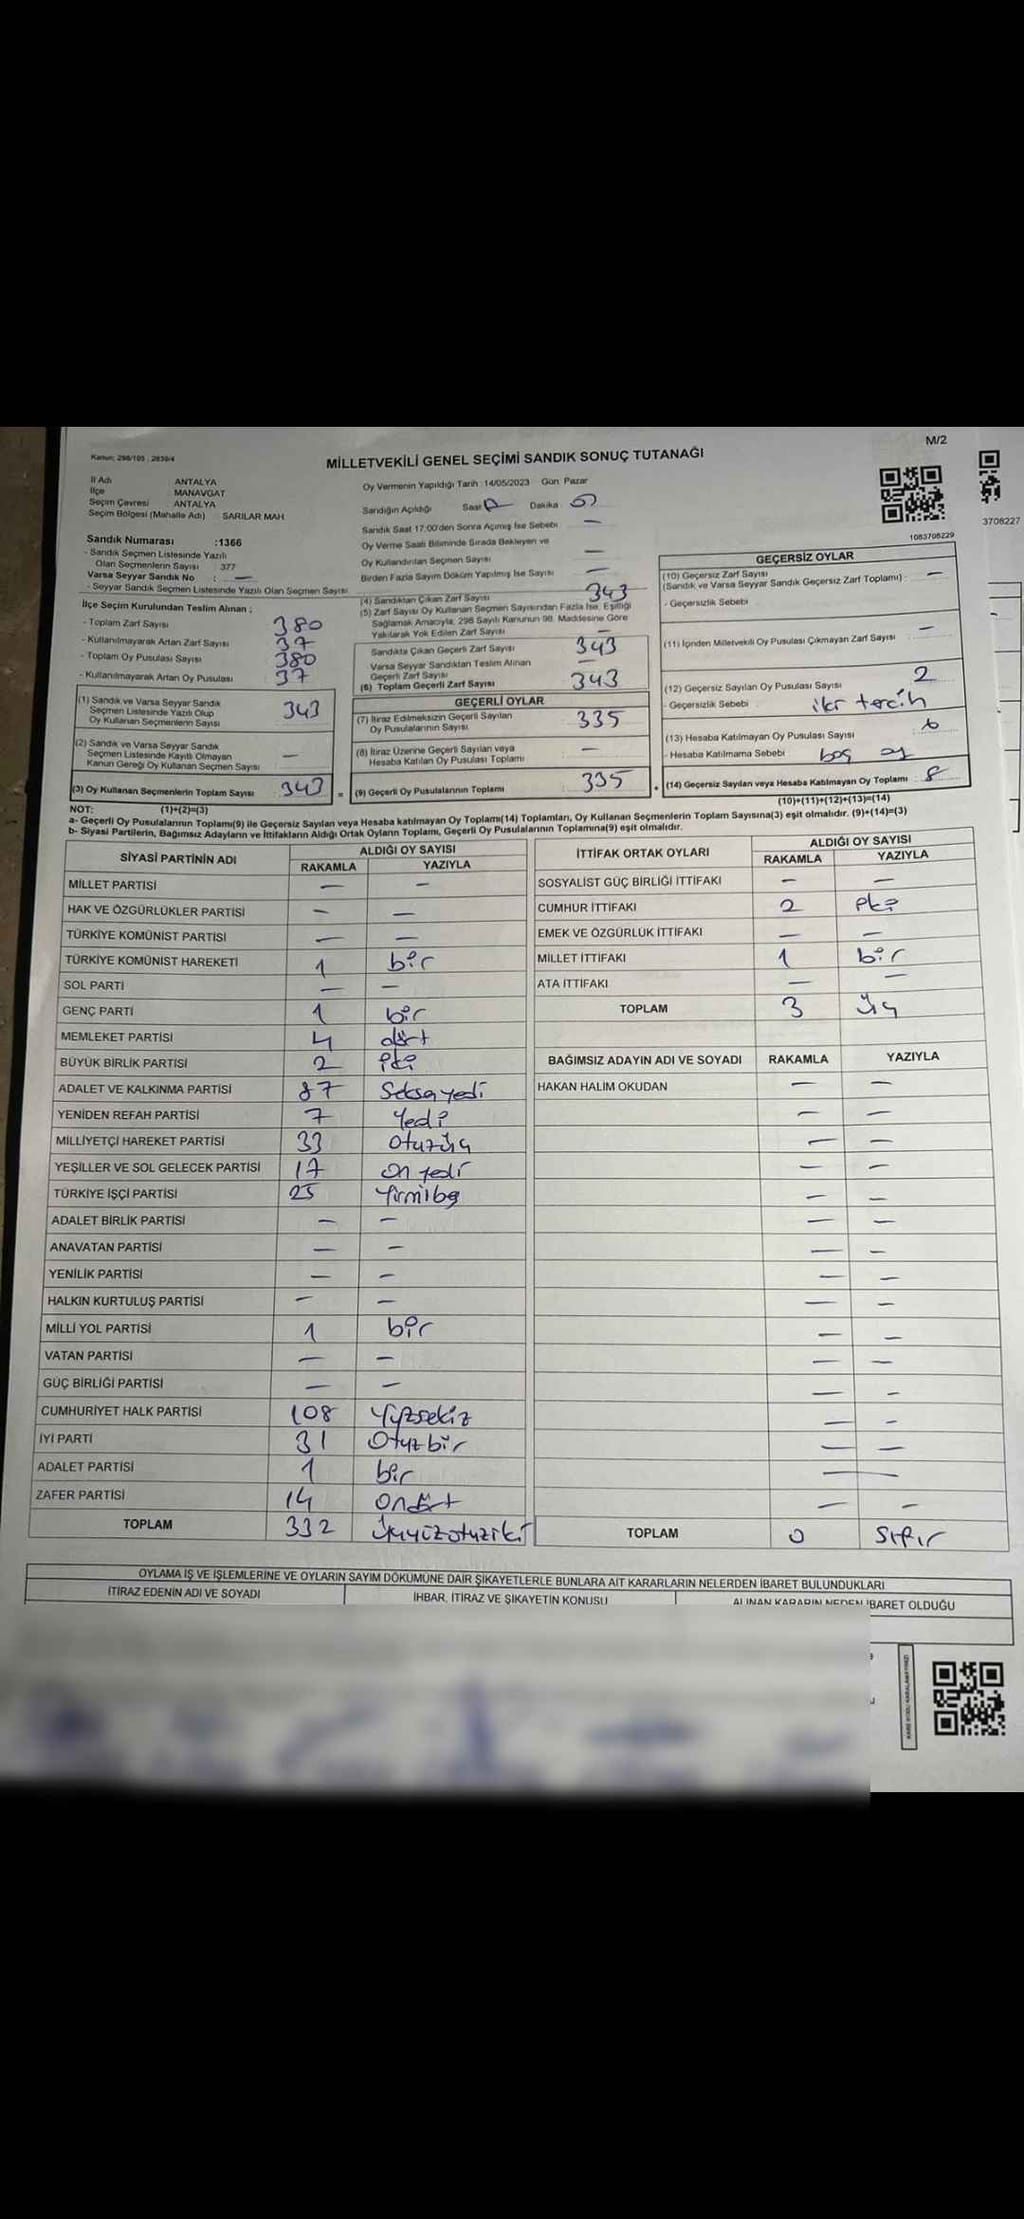 M/2
Kanun: 298/105 , 2839/4
MİLLETVEKİLİ GENEL SEÇİMİ SANDIK SONUÇ TUTANAĞI
İl Adı : ANTALYA
İlçe : MANAVGAT
Seçim Çevresi : ANTALYA
Seçim Bölgesi (Mahalle Adı) : SARILAR MAH.
Oy Vermenin Yapıldığı Tarih : 14/05/2023 Gün: Pazar
Sandığın Açıldığı Saat Dakika
Sandık Saat 17:00'den Sonra Açılmış İse Sebebi —
Oy Verme Saati Bitiminde Sırada Bekleyen ve
Oy Kullandırılan Seçmen Sayısı —
Birden Fazla Sayım Döküm Yapılmış İse Sayısı —
3708227
1083708229
Sandık Numarası :1366
- Sandık Seçmen Listesinde Yazılı
Olan Seçmenlerin Sayısı : 377
Varsa Seyyar Sandık No : —
- Seyyar Sandık Seçmen Listesinde Yazılı Olan Seçmen Sayısı
İlçe Seçim Kurulundan Teslim Alınan ;
- Toplam Zarf Sayısı 380
- Kullanılmayarak Artan Zarf Sayısı 37
- Toplam Oy Pusulası Sayısı 380
- Kullanılmayarak Artan Oy Pusulası 37
(1) Sandık ve Varsa Seyyar Sandık
Seçmen Listesinde Yazılı Olup
Oy Kullanan Seçmenlerin Sayısı 343
(2) Sandık ve Varsa Seyyar Sandık
Seçmen Listesinde Kayıtlı Olmayan
Kanun Gereği Oy Kullanan Seçmen Sayısı —
(3) Oy Kullanan Seçmenlerin Toplam Sayısı 343 =
(4) Sandıktan Çıkan Zarf Sayısı 343
(5) Zarf Sayısı Oy Kullanan Seçmen Sayısından Fazla İse, Eşitliği
Sağlamak Amacıyla, 298 Sayılı Kanunun 98. Maddesine Göre
Yakılarak Yok Edilen Zarf Sayısı —
Sandıkta Çıkan Geçerli Zarf Sayısı 343
Varsa Seyyar Sandıktan Teslim Alınan
Geçerli Zarf Sayısı —
(6) Toplam Geçerli Zarf Sayısı 343
GEÇERLİ OYLAR
(7) İtiraz Edilmeksizin Geçerli Sayılan
Oy Pusulalarının Sayısı 335
(8) İtiraz Üzerine Geçerli Sayılan veya
Hesaba Katılan Oy Pusulası Toplamı —
(9) Geçerli Oy Pusulalarının Toplamı 335 +
GEÇERSİZ OYLAR
(10) Geçersiz Zarf Sayısı
(Sandık ve Varsa Seyyar Sandık Geçersiz Zarf Toplamı) : —
- Geçersizlik Sebebi
(11) İçinden Milletvekili Oy Pusulası Çıkmayan Zarf Sayısı —
(12) Geçersiz Sayılan Oy Pusulası Sayısı 2
- Geçersizlik Sebebi iki tercih
(13) Hesaba Katılmayan Oy Pusulası Sayısı 6
- Hesaba Katılmama Sebebi boş oy
(14) Geçersiz Sayılan veya Hesaba Katılmayan Oy Toplamı 8
(10)+(11)+(12)+(13)=(14)
NOT: (1)+(2)=(3)
a- Geçerli Oy Pusulalarının Toplamı(9) ile Geçersiz Sayılan veya Hesaba katılmayan Oy Toplamı(14) Toplamları, Oy Kullanan Seçmenlerin Toplam Sayısına(3) eşit olmalıdır. (9)+(14)=(3)
b- Siyasi Partilerin, Bağımsız Adayların ve İttifakların Aldığı Ortak Oyların Toplamı, Geçerli Oy Pusulalarının Toplamına(9) eşit olmalıdır.
SİYASİ PARTİNİN ADI ALDIĞI OY SAYISI
RAKAMLA YAZIYLA
MİLLET PARTİSİ — —
HAK VE ÖZGÜRLÜKLER PARTİSİ — —
TÜRKİYE KOMÜNİST PARTİSİ — —
TÜRKİYE KOMÜNİST HAREKETİ 1 bir
SOL PARTİ — —
GENÇ PARTİ 1 bir
MEMLEKET PARTİSİ 4 dört
BÜYÜK BİRLİK PARTİSİ 2 iki
ADALET VE KALKINMA PARTİSİ 87 Seksayedi
YENİDEN REFAH PARTİSİ 7 Yedi
MİLLİYETÇİ HAREKET PARTİSİ 33 otuzüç
YEŞİLLER VE SOL GELECEK PARTİSİ 17 on yedi
TÜRKİYE İŞÇİ PARTİSİ 25 Yirmibeş
ADALET BİRLİK PARTİSİ — —
ANAVATAN PARTİSİ — —
YENİLİK PARTİSİ — —
HALKIN KURTULUŞ PARTİSİ — —
MİLLİ YOL PARTİSİ 1 bir
VATAN PARTİSİ — —
GÜÇ BİRLİĞİ PARTİSİ — —
CUMHURİYET HALK PARTİSİ 108 Yüzsekiz
İYİ PARTİ 31 Otuzbir
ADALET PARTİSİ 1 bir
ZAFER PARTİSİ 14 ondört
TOPLAM 332 üçyüzotuziki
İTTİFAK ORTAK OYLARI ALDIĞI OY SAYISI
RAKAMLA YAZIYLA
SOSYALİST GÜÇ BİRLİĞİ İTTİFAKI — —
CUMHUR İTTİFAKI 2 iki
EMEK VE ÖZGÜRLÜK İTTİFAKI — —
MİLLET İTTİFAKI 1 bir
ATA İTTİFAKI — —
TOPLAM 3 üç
BAĞIMSIZ ADAYIN ADI VE SOYADI RAKAMLA YAZIYLA
HAKAN HALİM OKUDAN — —
TOPLAM 0 Sıfır
OYLAMA İŞ VE İŞLEMLERİNE VE OYLARIN SAYIM DÖKÜMÜNE DAİR ŞİKAYETLERLE BUNLARA AİT KARARLARIN NELERDEN İBARET BULUNDUKLARI
İTİRAZ EDENİN ADI VE SOYADI İHBAR, İTİRAZ VE ŞİKAYETİN KONUSU ALINAN KARARIN NEDEN İBARET OLDUĞU